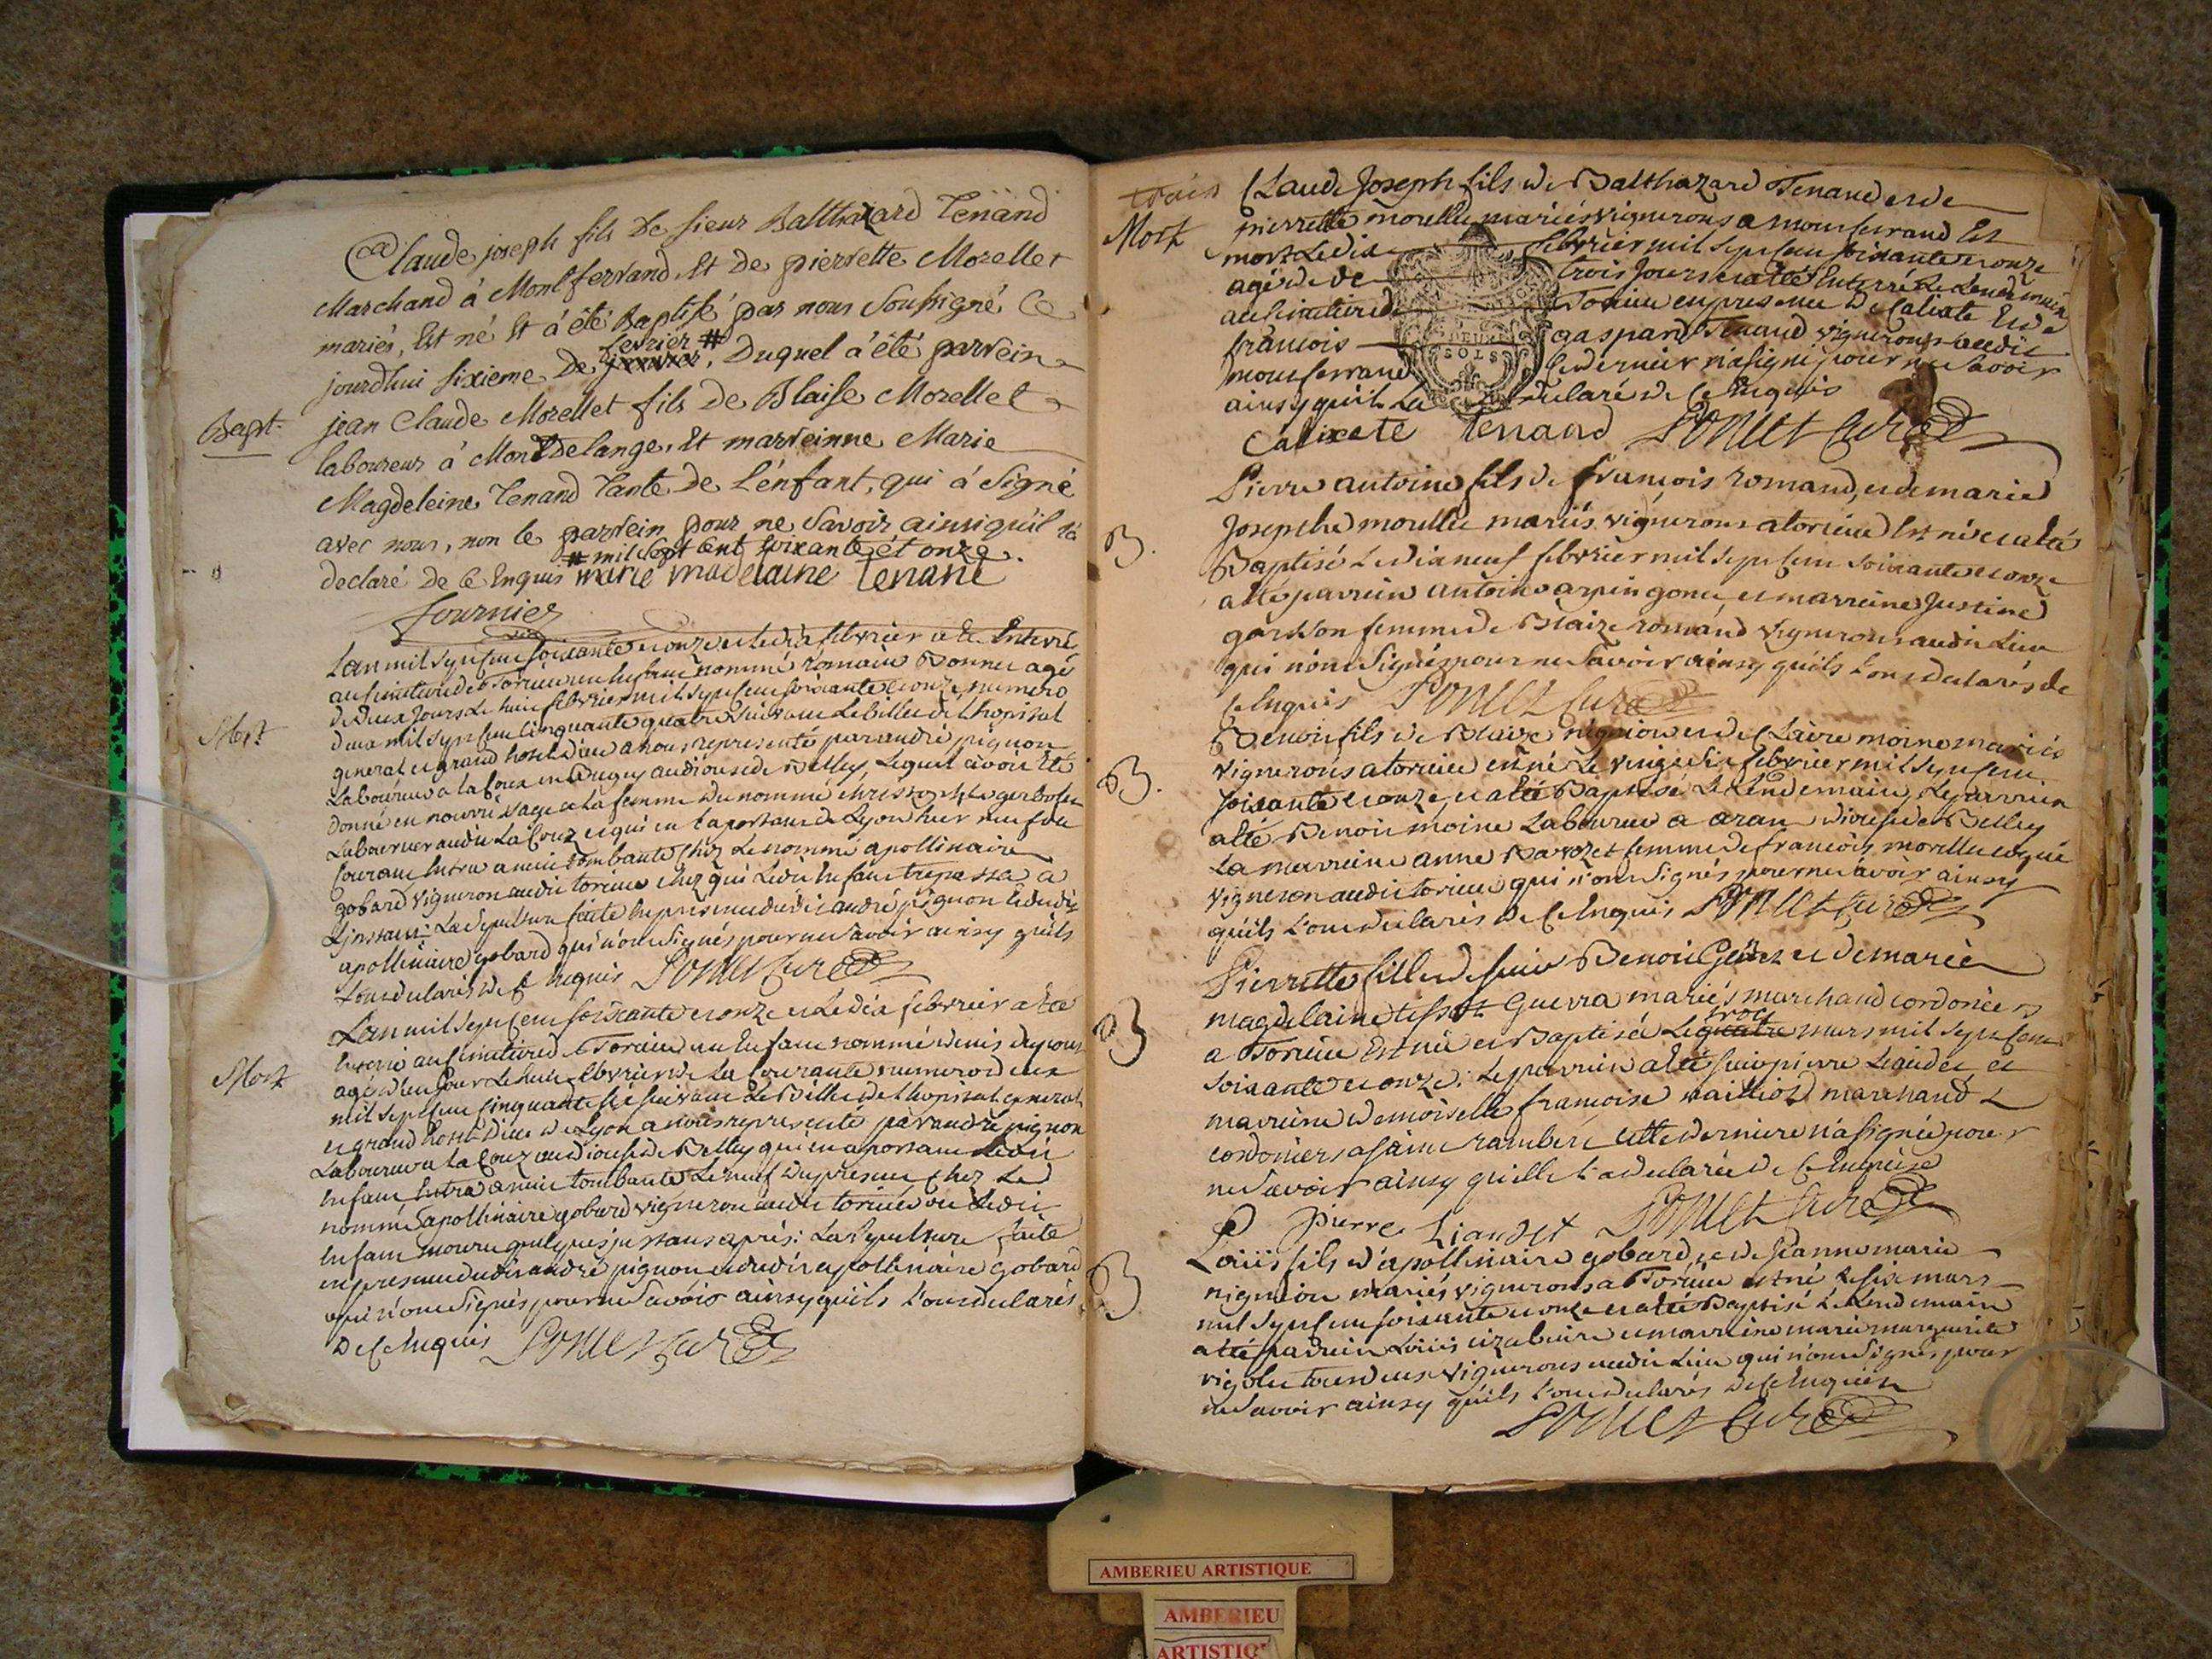 Claude joseph fils de sieur Balthazard Tenand
Marchand à Montferrand Et de pierrette Morellet
mariés, Est né Et à été Baptisé par nous Soussigné Ce
jourdhui sixieme de fevrier # Duquel à été parrein
Bapt.
jean Claude Morellet fils de Blaise Morellet
laboureur à Montdelange, Et marreinne Marie
Magdeleine Tenand Tante de L'enfant, qui à Signé
avec nous, non le parrein pour ne Savoir ainsi quil l'a
# mil Sept Cent soixante et onze.
declaré de Ce Enquis marie madelaine tenand
fournier
Lan mil sept cent soixante et onze et le dix febvrier a Eté Enterré
au cimetiere de Torcieu un Enfant nommé romain Bonnet agé
de deux Jours Le huit febvrier mil sept cent soixante et onze, numero
Mort
deux mil sept cent cinquante quatre suivant Le billet de L'hopital
general et grand hotel dieu a nous representé par andré pignon
Laboureur a la Couz en Bugey audiocese de Belley, Lequel avoit Eté
donné en nourrissage a La femme du nommé
Laboureur audit La Couz et qui en L'aportant de Lyon hier neuf du
Courant Entra a nuit tombante chez Le nommé apollinaire
gobard vigneron audit torcieu chez qui Ledit Enfant trepassa a
Linstant: La sepulture faite En presence dudit andré pignon et dudit
apollinaire gobard qui n'ont signés pour ne savoir ainsy quils
L'ont declarés de ce Enquis Poncet Curé
Lan mil sept cent soixante et onze et Le dix febvrier a Eté
Enterré au cimetiere de Torcieu un Enfant nommé denis
Mort
agé d'un Jour Le huit febvrier de La Courante numero deux
mil sept cent cinquante six suivant Le Billet de L'hopital general
et grand hotel dieu de Lyon a nous representé par andré pignon
Laboureur a la Couz audiocese de Belley qui en aportant Ledit
Enfant Entra a nuit tombante Le neuf du present chez Le d
nommé apollinaire gobard vigneron audit torcieu ou Ledit
Enfant mouru quelques instans après: La sepulture faite
en presence dudit andré pignon et dudit apollinaire gobard
qui n'ont signés pour ne savoir ainsy quils L'ont declarés
de Ce Enquis Poncet Curé
trois
Claude Joseph fils de Balthazard Tenand et de
Mort
pierrette morellet mariés vignerons a montferrand Est
mort Le dix febvrier mil sept cent soixante et onze
agé de trois Jours et a été Enterré Le Lendemain
au cimetiere de Torcieu en presence de Calixte Et de
françois gaspard Tenand vignerons audit
montferrand Ce dernier n'a signé pour ne savoir
ainsy quil La declaré de Ce Enquis
DEUX SOLS
Calixete tenand Poncet Curé
Pierre antoine fils de françois romand, et de marie
Josephe morellet mariés vignerons a torcieu Est né et a été
B.
Baptisé Le dix neuf febvrier mil sept cent soixante et onze
a été parrein antoine arpin gonet, et marreine Justine
femme de Blaize romand vignerons audit Lieu
qui n'ont Signés pour ne Savoir ainsy quils L'ont declarés de
Ce Enquis Poncet Curé
Benoit fils de Blaize nigniou et de Claire moine mariés
B.
vignerons a torcieu est né Le vingt six febvrier mil sept cent
soixante et onze, et a été Baptisé Le Lendemain, Le parrein
a été Benoit moine Laboureur a aran diocese de Belley
La marreine anne femme de françois morellet
vigneron audit torcieu qui n'ont signés pour ne savoir ainsy
quils L'ont declarés de Ce Enquis Poncet Curé
Pierrette fille de sieur Benoit et de marie
B
magdelaine tissot Guerra mariés marchand cordoniers
a Torcieu Est née et Baptisée Le quatre trois mars mil sept cent
soixante et onze: Le parrein a été sieur pierre Liaudet et
marreine demoiselle françoise marchand
cordoniers a saint rambert cette derniere n'a signée pour
ne savoir ainsy quelle L'a declarée de Ce Enquise
pierre Liaudet Poncet Curé
Loüis fils d'apollinaire gobard et de Jeanne marie
B
nigniou mariés vignerons a Torcieu est né Le six mars
mil sept cent soixante et onze et a été Baptisé Le Lendemain
a été parrein Loüis et marreine marie marguerite
tous deux vignerons audit Lieu qui n'ont signés pour
ne savoir ainsy quils L'ont declarés de Ce Enquis
Poncet Curé
AMBERIEU ARTISTIQUE
AMBERIEU
ARTISTIQ